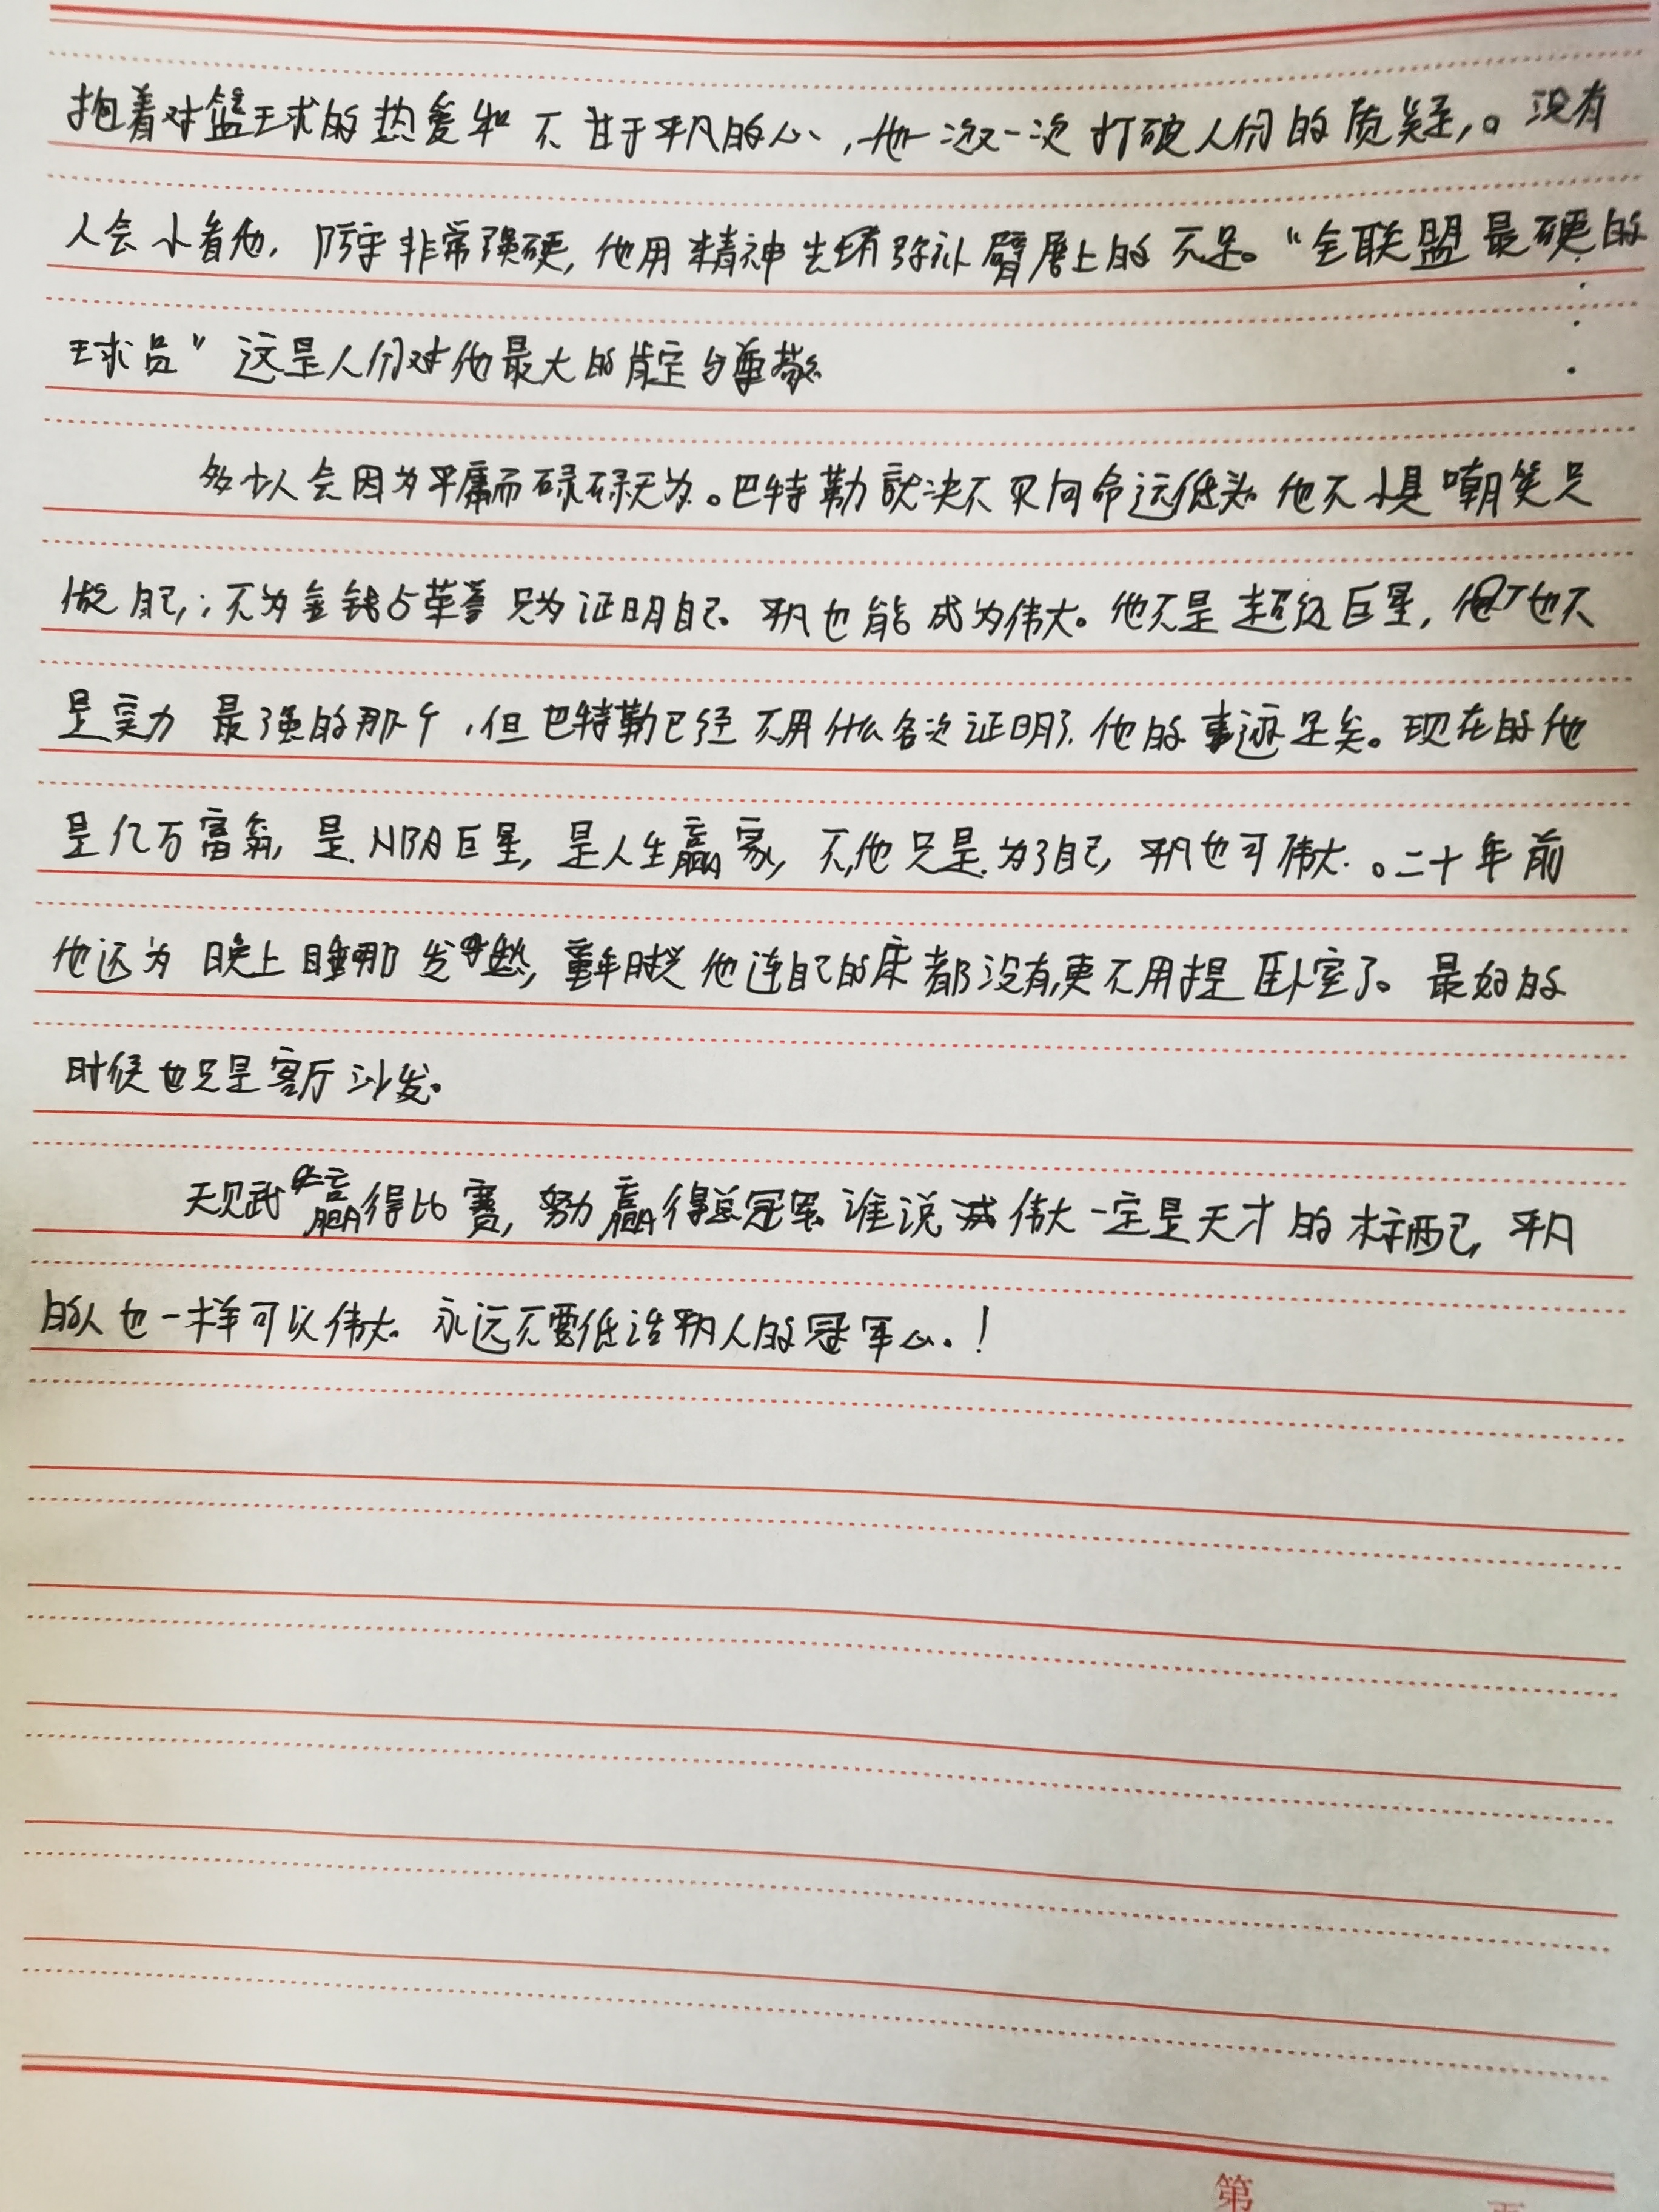 抱着对篮球的热爱和不甘于平凡的心，他一次又一次打破人们的质疑，。没有
人会小看他，防守非常强硬，他用精神去弥补臂展上的不足。“全联盟最硬的
球员”这是人们对他最大的肯定与尊敬
多少人会因为平庸而碌碌无为。巴特勒就决不向命运低头 他不惧嘲笑只
做自己，；不为金钱与荣誉只为证明自己 平凡也能成为伟大。他不是超级巨星，他也不
是实力最强的那个，但巴特勒已经不用什么名次证明了，他的事迹足矣。现在的他
是亿万富翁，是NBA巨星，是人生赢家，不，他只是为了自己，平凡也可伟大。二十年前
他还为晚上睡哪发愁，童年时 他连自己的床都没有，更不用提卧室了。最好的
时候也只是客厅沙发。
天赋赢得比赛，努力赢得总冠军 谁说伟大一定是天才的标配，平凡
的人也一样可以伟大。永远不要低估平凡人的冠军心。！
第
页